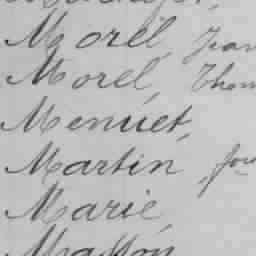 Morel, Jean
Morel, Thom
Menuet,
Martin, Jou
Marie,
Masson